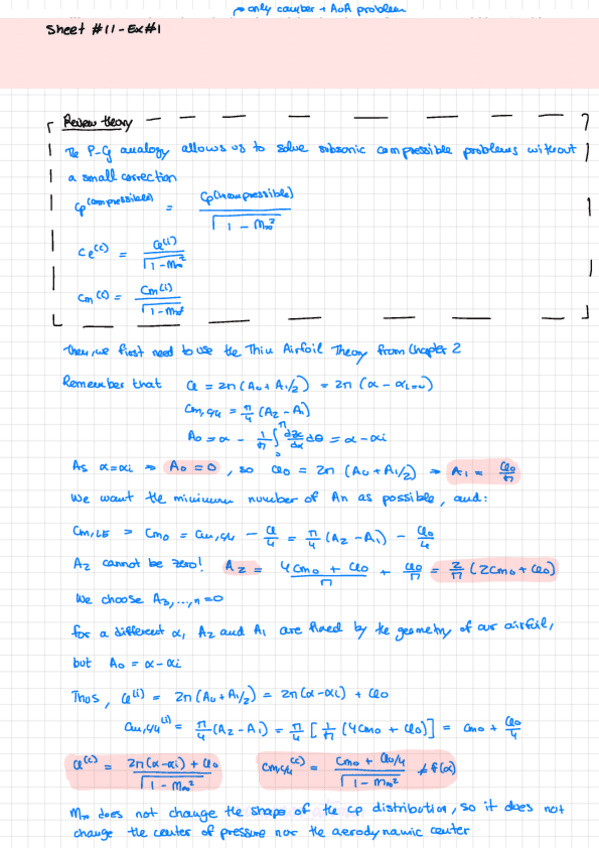 → only camber + AoA problem
Sheet #11 - Ex#1
Review theory
The P-G analogy allows us to solve subsonic compressible problems without
a small correction
Cp(compressible) = Cp(incompressible) / √(1 - M∞²)
Cl(c) = Cl(i) / √(1 - M∞²)
Cm(c) = Cm(i) / √(1 - M∞²)
then, we first need to use the Thin Airfoil Theory from Chapter 2
Remember that Cl = 2π (A0 + A1/2) = 2π (α - αL=0)
Cm,c/4 = π/4 (A2 - A1)
A0 = α - 1/π ∫0^π dzc/dx dθ = α - αi
As α = αi ⇒ A0 = 0, so Cl0 = 2π (A0 + A1/2) ⇒ A1 = Cl0/π
We want the minimum number of An as possible, and:
Cm,LE = Cm0 = Cm,c/4 - Cl/4 = π/4 (A2 - A1) - Cl0/4
A2 cannot be zero! A2 = (4Cm0 + Cl0)/π + Cl0/π = 2/π (2Cm0 + Cl0)
We choose A3,...,n = 0
for a different α, A2 and A1 are fixed by the geometry of our airfoil,
but A0 = α - αi
Thus, Cl(i) = 2π (A0 + A1/2) = 2π (α - αi) + Cl0
Cm,c/4(i) = π/4 (A2 - A1) = π/4 [1/π (4Cm0 + Cl0)] = Cm0 + Cl0/4
Cl(c) = (2π(α - αi) + Cl0) / √(1 - M∞²) Cm,c/4(c) = (Cm0 + Cl0/4) / √(1 - M∞²) ≠ f(α)
M∞ does not change the shape of the cp distribution, so it does not
change the center of pressure nor the aerodynamic center